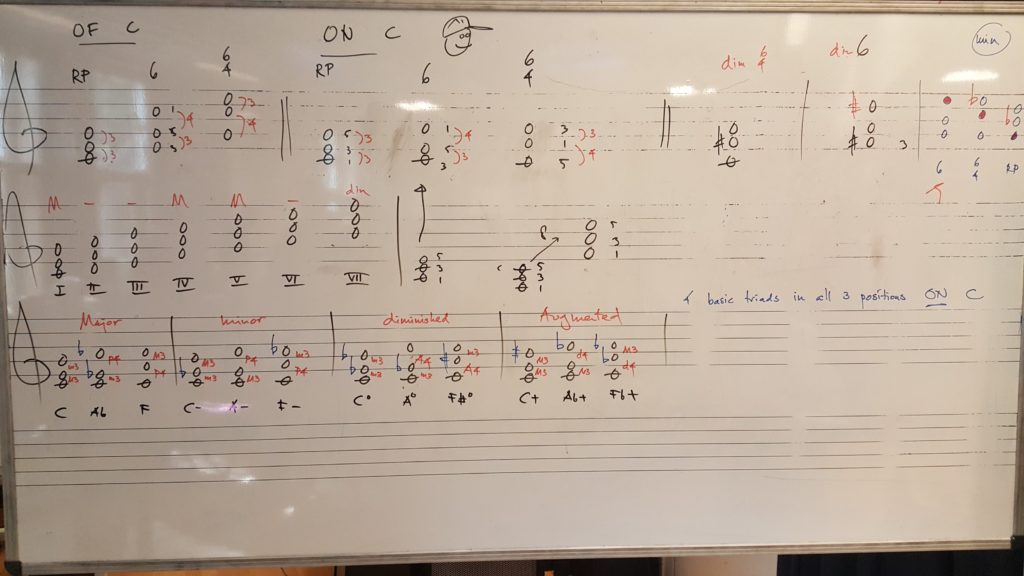 OF C
ON C
min
RP 6 6 4
RP 6 6 4
dim 6 4
dim 6
1 5 3
3 3
4 3
3 4
5 3 1
3 3
1 5 3
4 3
3 1 5
3 4
♯
♯ ♯ 3
♭ ♭
6 6 4 RP
M – – M M – dim
I II III IV V VI VII
5 3 1
5 3 1
8
5 3 1
4 basic triads in all 3 positions ON C
Major minor diminished Augmented
m3 M3
♭ ♭ P4 m3
M3 P4
♭ M3 m3
P4 M3
♭ m3 P4
♭ ♭ m3 m3
♭ A4 m3
♯ m3 A4
♯ M3 M3
♭ d4 M3
♭ ♭ M3 d4
C Ab F C- A- F- C° A° F#° C+ Ab+ Fb+